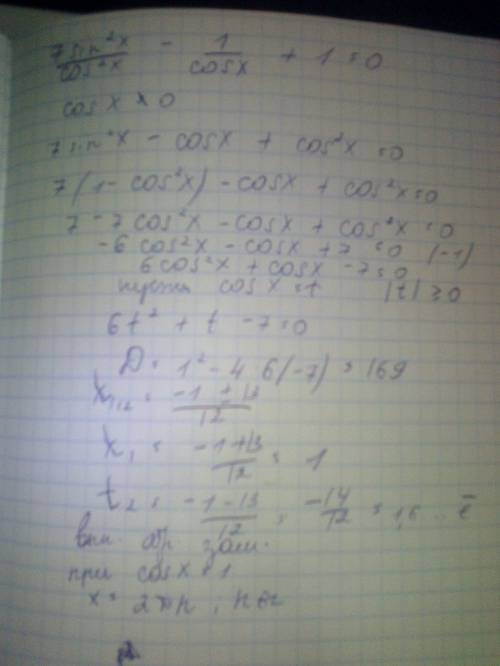 7sin²x/cos²x - 1/cosx + 1 = 0
cosx ≠ 0
7sin²x - cosx + cos²x = 0
7(1-cos²x) - cosx + cos²x = 0
7 - 7cos²x - cosx + cos²x = 0
-6cos²x - cosx + 7 = 0 (-1)
6cos²x + cosx - 7 = 0
пусть cosx = t |t| ≥ 0
6t² + t - 7 = 0
D = 1² - 4 6(-7) = 169
x₁,₂ = -1 ± 13/12
x₁ = -1+13/12 = 1
t₂ = -1-13/12 = -14/12 = 1,6
зам.
при cosx = 1
x = 2πn, n∈z